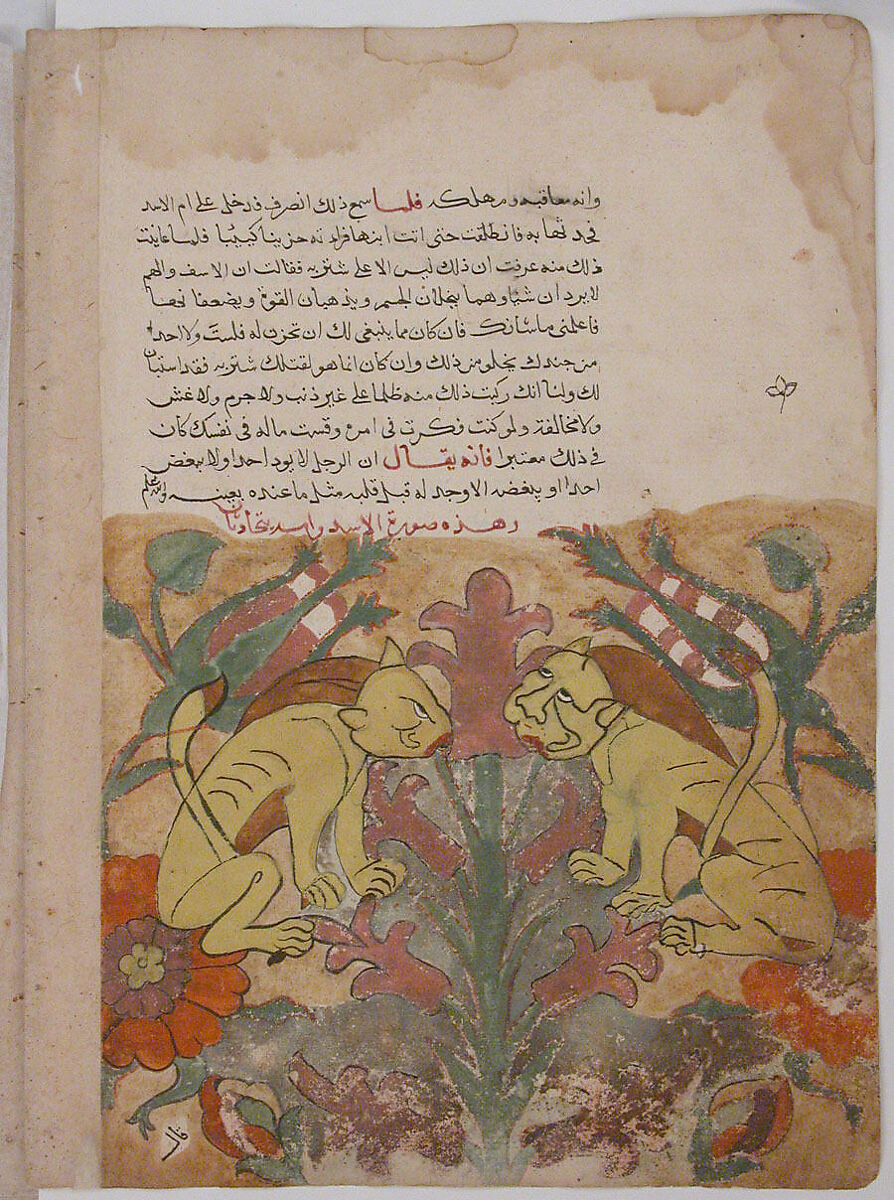 وانه معاقبه ومهلكه فلما سمع ذلك انصرف فدخل على ام الاسد
فحدثها به فانطلقت حتى اتت ابنها فراته حزينا كييبا فلما عاينت
ذلك منه عرفت ان ذلك ليس الا على شتربه فقالت ان الاسف والهم
لا يردان شيا وهما ينحلان الجسم ويذهبان القوة ويضعفا نها
فاعلمنى ما شانك فان كان مما ينبغى لك ان تحزن له فلست ولا احدا
من جندك يخلو من ذلك وان كان انما هو لقتلك شتربه فقد استبان
لك ولنا انك ركبت ذلك منه ظلما على غير ذنب ولا جرم ولا غش
ولا مخالفة ولو كنت فكرت فى امره وقست ماله فى نفسك كان
فى ذلك معتبرا فانه يقال ان الرجل لا يود احدا ولا يبغض
احدا او يبغضه الا وجد له قبل قلبه مثل ما عنده بعينه والله اعلم
وهذه صورة الاسد وامه يتحاوران
قال